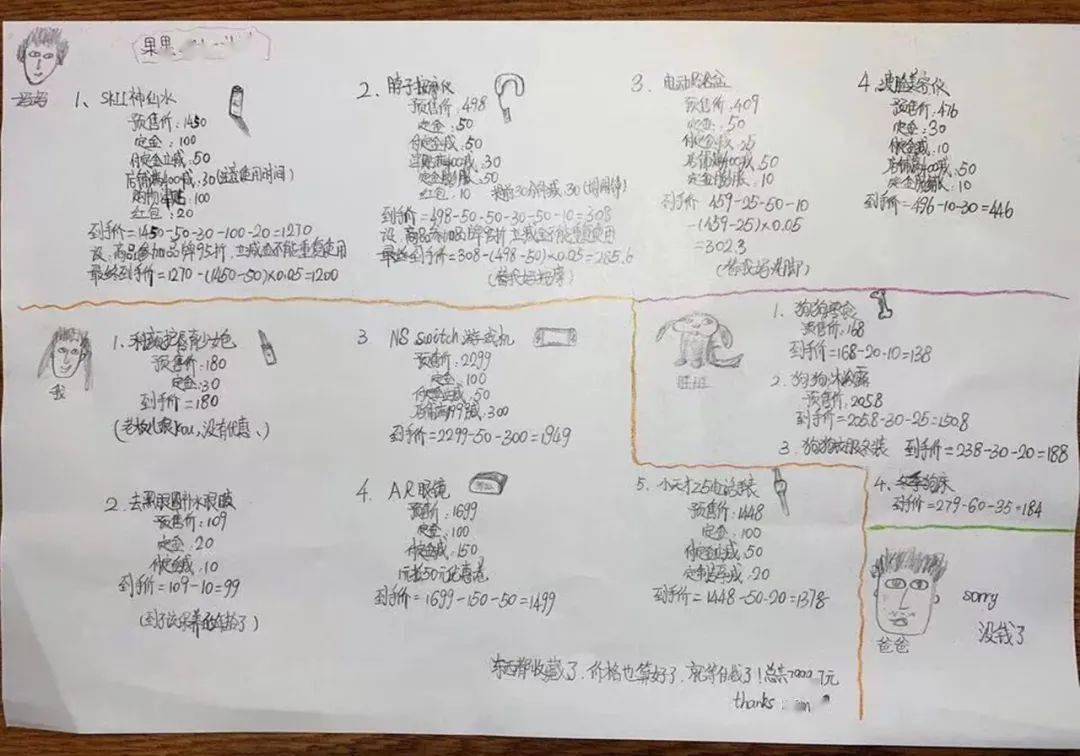 果果
妈妈
1、SKII神仙水
预售价:1450
定金:100
付定金立减:50
店铺满400减:30(注意使用时间)
购物津贴:100
红包:20
到手价=1450-50-30-100-20=1270
设:商品参加品牌95折,立减金不能重复使用
最终到手价=1270-(1450-50)×0.05=1200
2、脖子按摩仪
预售价:498
定金:50
付定金减:50
满400减:30
定金膨胀:50
红包:10
提前30分钟减:30
到手价=498-50-50-30-50-10=308
设:商品参加品牌折,立减金不能重复使用
最终到手价=308-(498-50)×0.05=285.6
(替我妈按摩)
3、电动
预售价:409
定金:50
付定金减:25
店铺满400减:50
定金膨胀:10
到手价=459-25-50-10
-(459-25)×0.05
=302.3
(替我妈洗脚)
4、美容仪
预售价:476
定金:30
付定金减:10
店铺满400减:50
定金膨胀:10
到手价=496-10-30=446
我
1、护唇少女色
预售价:180
定金:30
到手价=180
(老板儿很kou,没有优惠、)
2、去黑眼圈补水眼膜
预售价:109
定金:20
付定金减:10
到手价=109-10=99
(到了该保养的年龄了)
3 NS switch游戏机
预售价:2299
定金:100
付定金立减:50
店铺满199减:300
到手价=2299-50-300=1949
4、AR眼镜
预售价:1699
定金:100
付定金减:150
1元抵50元优惠卷
到手价=1699-150-50=1499
5、小天才Z5电话手表
预售价:1448
定金:100
付定金立减:50
减:20
到手价=1448-50-20=1378
旺旺
1、狗狗
预售价:168
到手价=168-20-10=138
2、狗狗沐浴露
预售价:205.8
到手价=205.8-30-25=150.8
3、狗狗衣服冬装 到手价=238-30-20=188
4、冬季狗床
到手价=279-60-35=184
爸爸
sorry
没钱了
东西都收藏了,价格也算好了,就等付钱了!总共7000.7元
thanks: